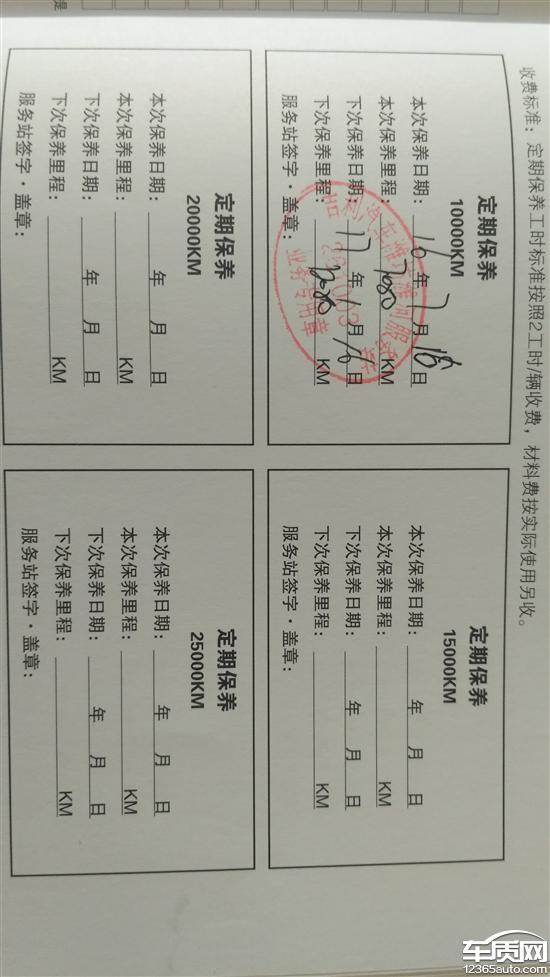 收费标准：定期保养工时标准按照2工时/辆收费，材料费按实际使用另收。
定期保养
10000KM
本次保养日期：16年7月18日
本次保养里程：7080KM
下次保养日期：17年1月16日
下次保养里程：KM
服务站签字·盖章：
业务专用章
定期保养
15000KM
本次保养日期：年 月 日
本次保养里程：KM
下次保养日期：年 月 日
下次保养里程：KM
服务站签字·盖章：
定期保养
20000KM
本次保养日期：年 月 日
本次保养里程：KM
下次保养日期：年 月 日
下次保养里程：KM
服务站签字·盖章：
定期保养
25000KM
本次保养日期：年 月 日
本次保养里程：KM
下次保养日期：年 月 日
下次保养里程：KM
服务站签字·盖章：
提
车质网
12365auto.com